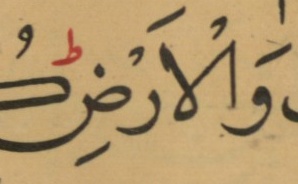 وَالْاَرْضِ ط